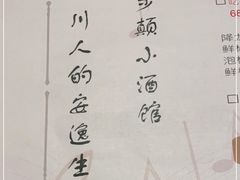 颠小酒馆
川人的安逸生
68
降
鲜
泡
鲜